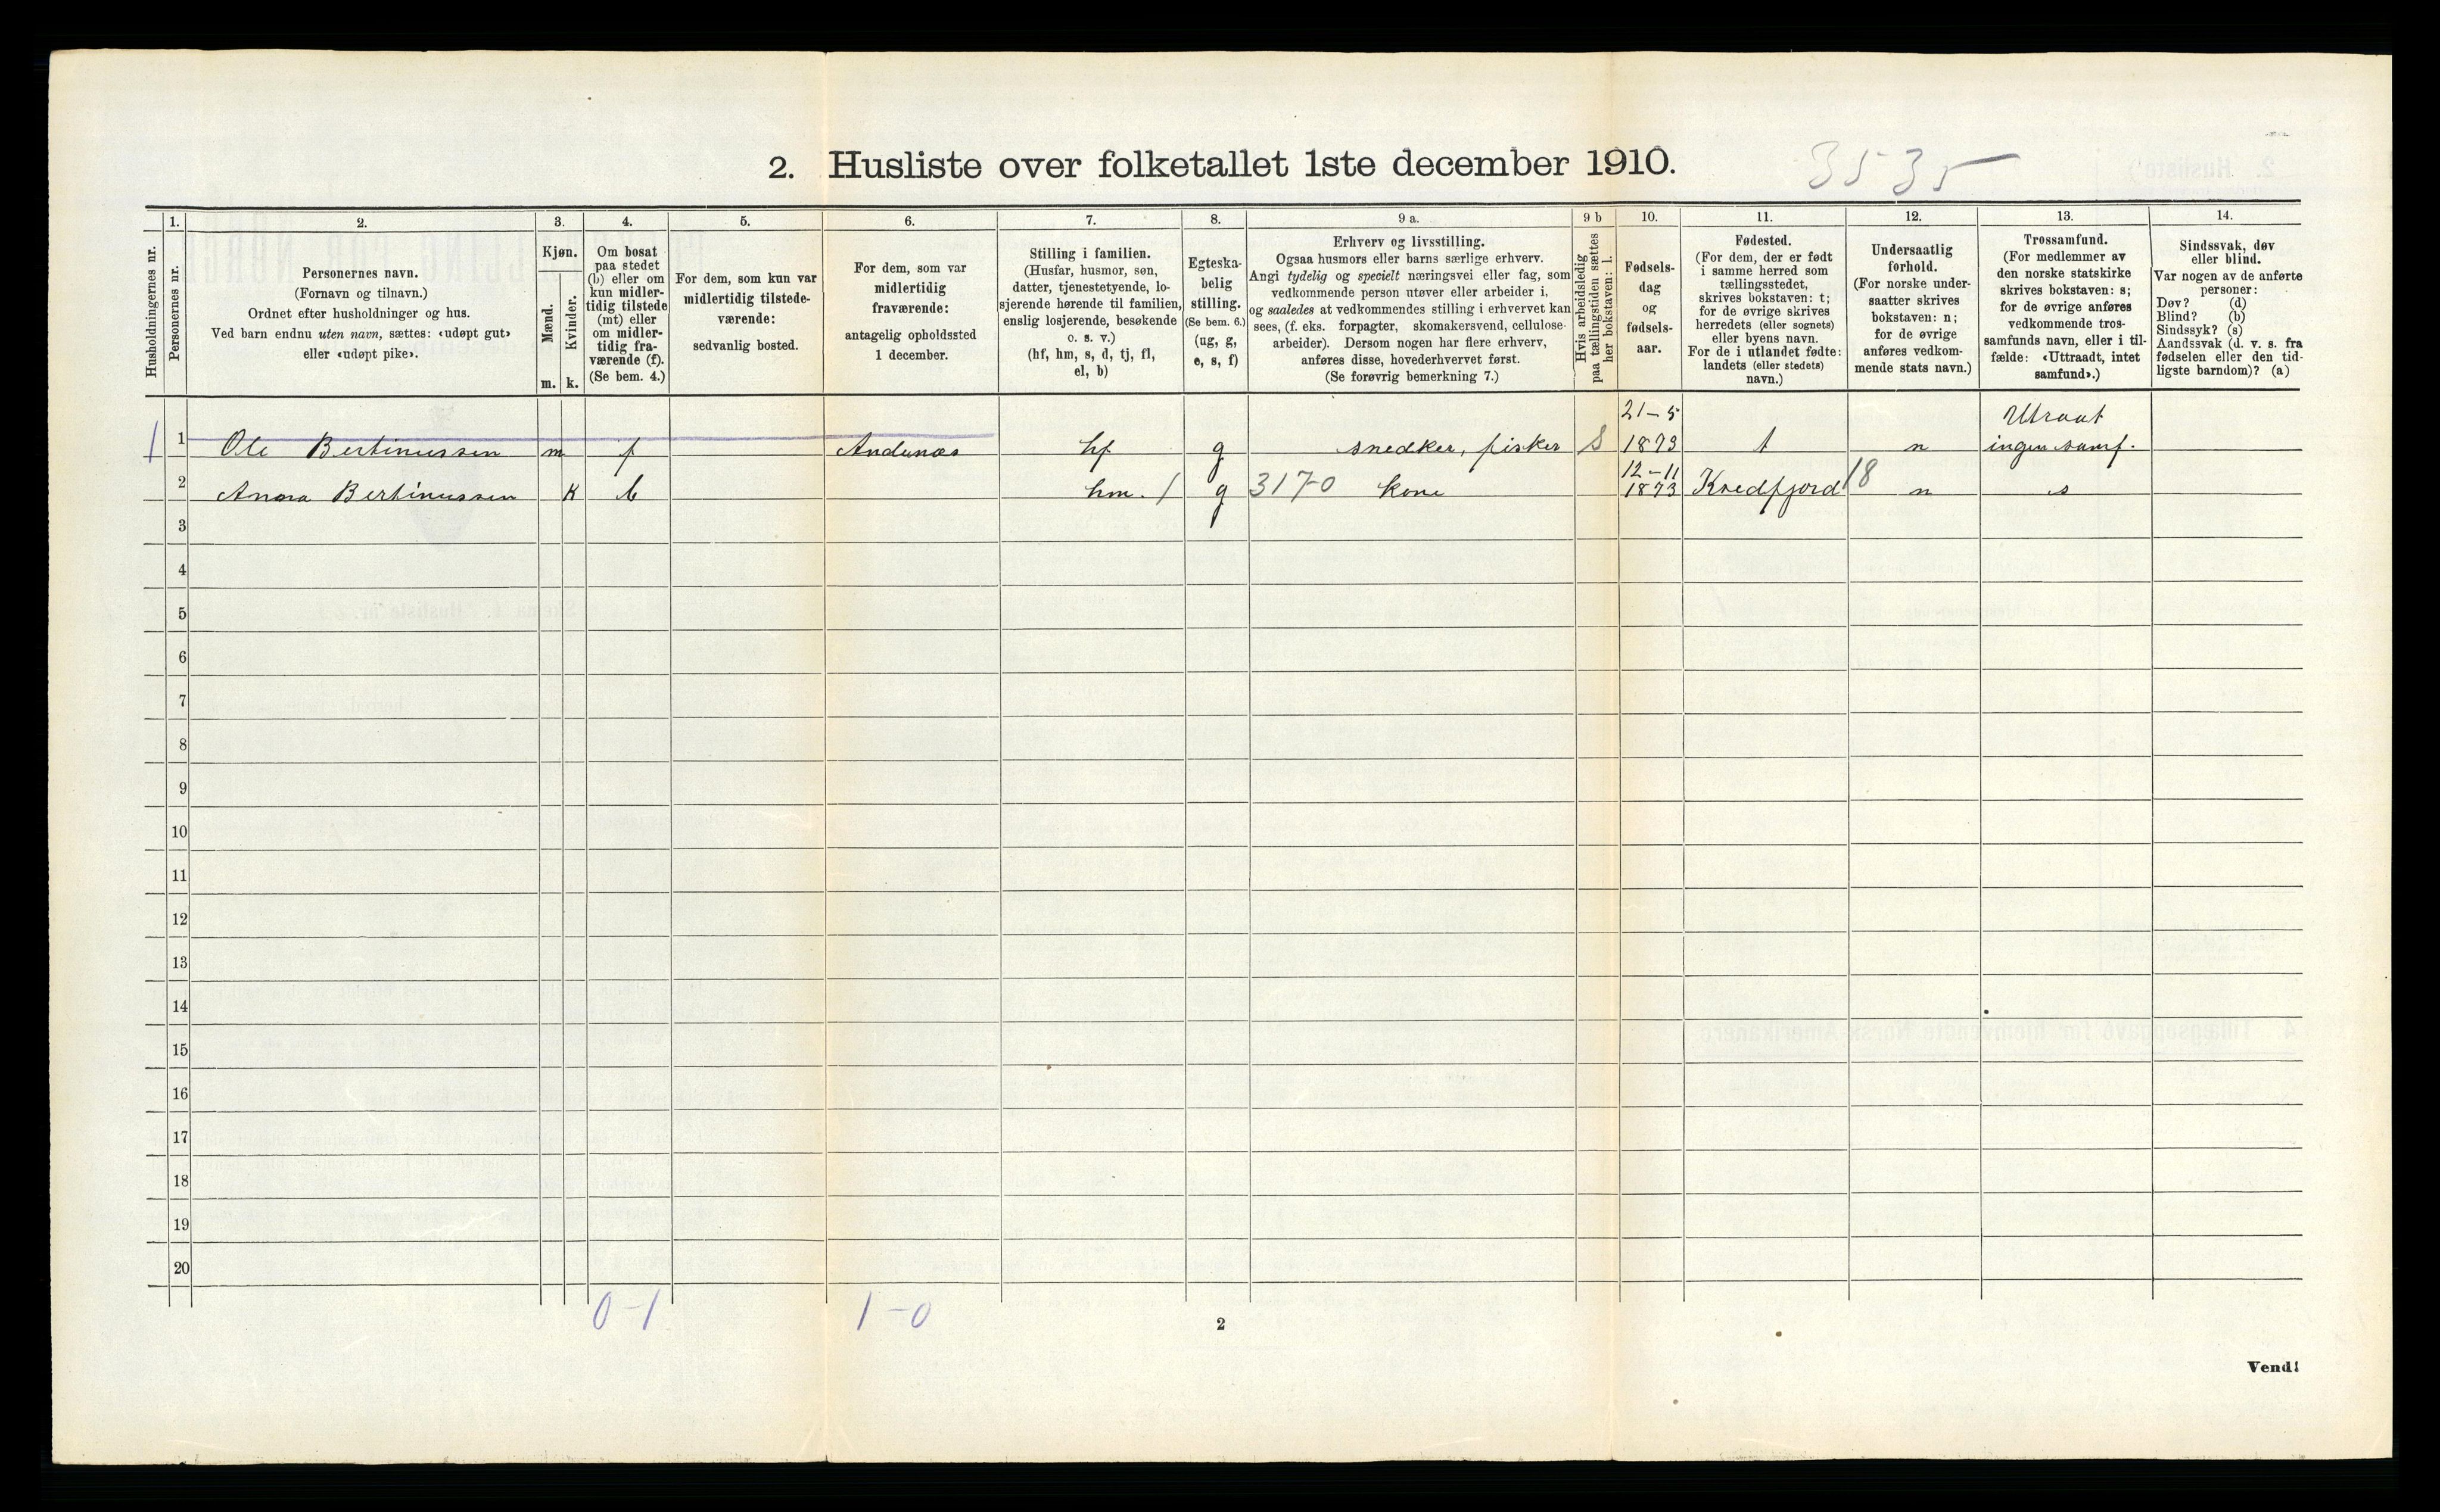 2. Husliste over folketallet 1ste december 1910.
3535
Husholdningernes nr.
1.
Personernes nr.
2.
Personernes navn.
(Fornavn og tilnavn.)
Ordnet efter husholdninger og hus.
Ved barn endnu uten navn, sættes: «udøpt gut»
eller «udøpt pike».
3.
Kjøn.
Mænd.
Kvinder.
m. k.
4.
Om bosat
paa stedet
(b) eller om
kun midler-
tidig tilstede
(mt) eller
om midler-
tidig fra-
værende (f).
(Se bem. 4.)
5.
For dem, som kun var
midlertidig tilstede-
værende:
sedvanlig bosted.
6.
For dem, som var
midlertidig
fraværende:
antagelig opholdssted
1 december.
7.
Stilling i familien.
(Husfar, husmor, søn,
datter, tjenestetyende, lo-
sjerende hørende til familien,
enslig losjerende, besøkende
o. s. v.)
(hf, hm, s, d, tj, fl,
el, b)
8.
Egteska-
belig
stilling.
(Se bem. 6.)
(ug, g,
e, s, f)
9 a.
Erhverv og livsstilling.
Ogsaa husmors eller barns særlige erhverv.
Angi tydelig og specielt næringsvei eller fag, som
vedkommende person utøver eller arbeider i,
og saaledes at vedkommendes stilling i erhvervet kan
sees, (f. eks. forpagter, skomakersvend, cellulose-
arbeider). Dersom nogen har flere erhverv,
anføres disse, hovederhvervet først.
(Se forøvrig bemerkning 7.)
9 b
Hvis arbeidsledig
paa tællingstiden sættes
her bokstaven: l.
10.
Fødsels-
dag
og
fødsels-
aar.
11.
Fødested.
(For dem, der er født
i samme herred som
tællingsstedet,
skrives bokstaven: t;
for de øvrige skrives
herredets (eller sognets)
eller byens navn.
For de i utlandet fødte:
landets (eller stedets)
navn.)
12.
Undersaatlig
forhold.
(For norske under-
saatter skrives
bokstaven: n;
for de øvrige
anføres vedkom-
mende stats navn.)
13.
Trossamfund.
(For medlemmer av
den norske statskirke
skrives bokstaven: s;
for de øvrige anføres
vedkommende tros-
samfunds navn, eller i til-
fælde: «Uttraadt, intet
samfund».)
14.
Sindssvak, døv
eller blind.
Var nogen av de anførte
personer:
Døv? (d)
Blind? (b)
Sindssyk? (s)
Aandssvak (d. v. s. fra
fødselen eller den tid-
ligste barndom)? (a)
21-5 Utraat
1 1 Ole Bertinussen m f Andenæs hf g snedker, fisker S 1873 t n ingen samf.
12-11
2 Anna Bertinussen k b hm. 1 g 3170 kone 1873 Kvedfjord 18 n s
3
4
5
6
7
8
9
10
11
12
13
14
15
16
17
18
19
20
0-1 1-0
2
Vend!